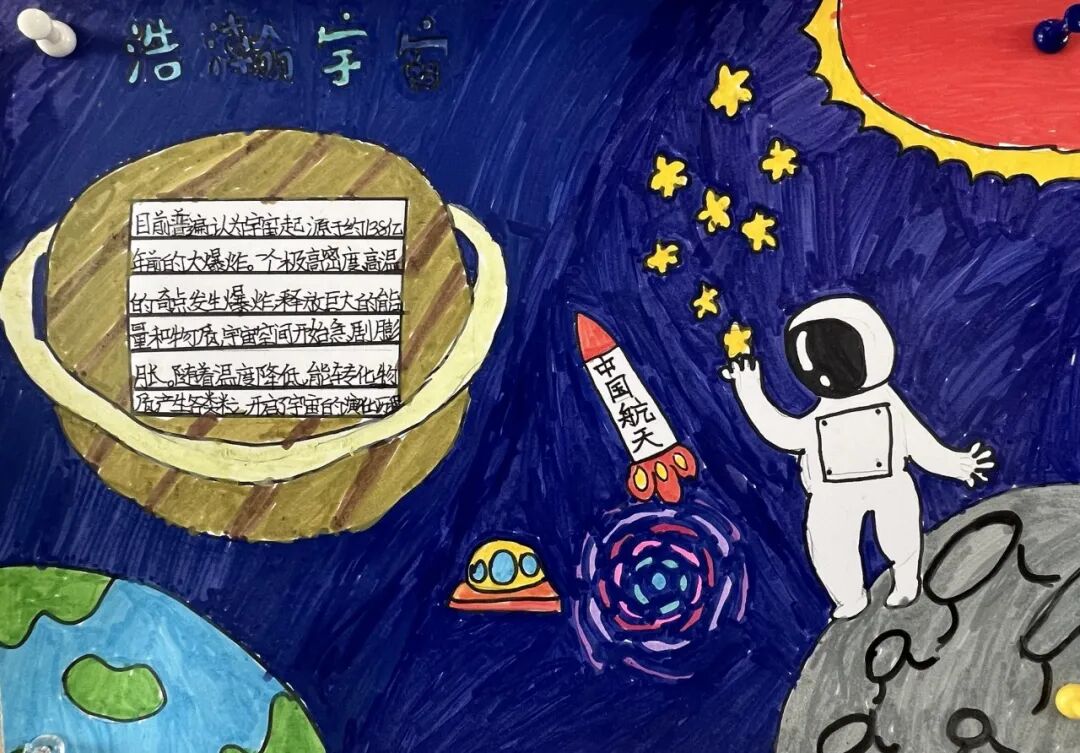 浩瀚宇宙
目前普遍认为宇宙起源于约138亿
年前的大爆炸。一个极高密度、高温
的奇点发生爆炸,释放巨大的能
量和物质,宇宙空间开始急剧膨
胀。随着温度降低,能转化物
质产生各类粒,开启了宇宙的演化历程
中国航天